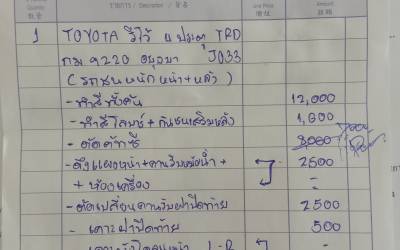 Quantity รายการ / Description / 品名 Unit Price Amount
数量 价格 总额
1 TOYOTA วีโก้ 4 ประตู TRD
กม 9220 อยุธยา J033
(รถชนหนักหน้า+หลัง)
- ทำสีทั้งคัน 12,000
- ทำสีโลมาร์+กันชนเสริมหลัง 1,600
- ตัดคัทซี 3000
- ดึงแผงหน้า+คานรับหม้อน้ำ+ 2500
+ห้องเครื่อง -
- ตัดเปลี่ยนคานรับฝาปิดท้าย 2500
- เคาะฝาปิดท้าย 500